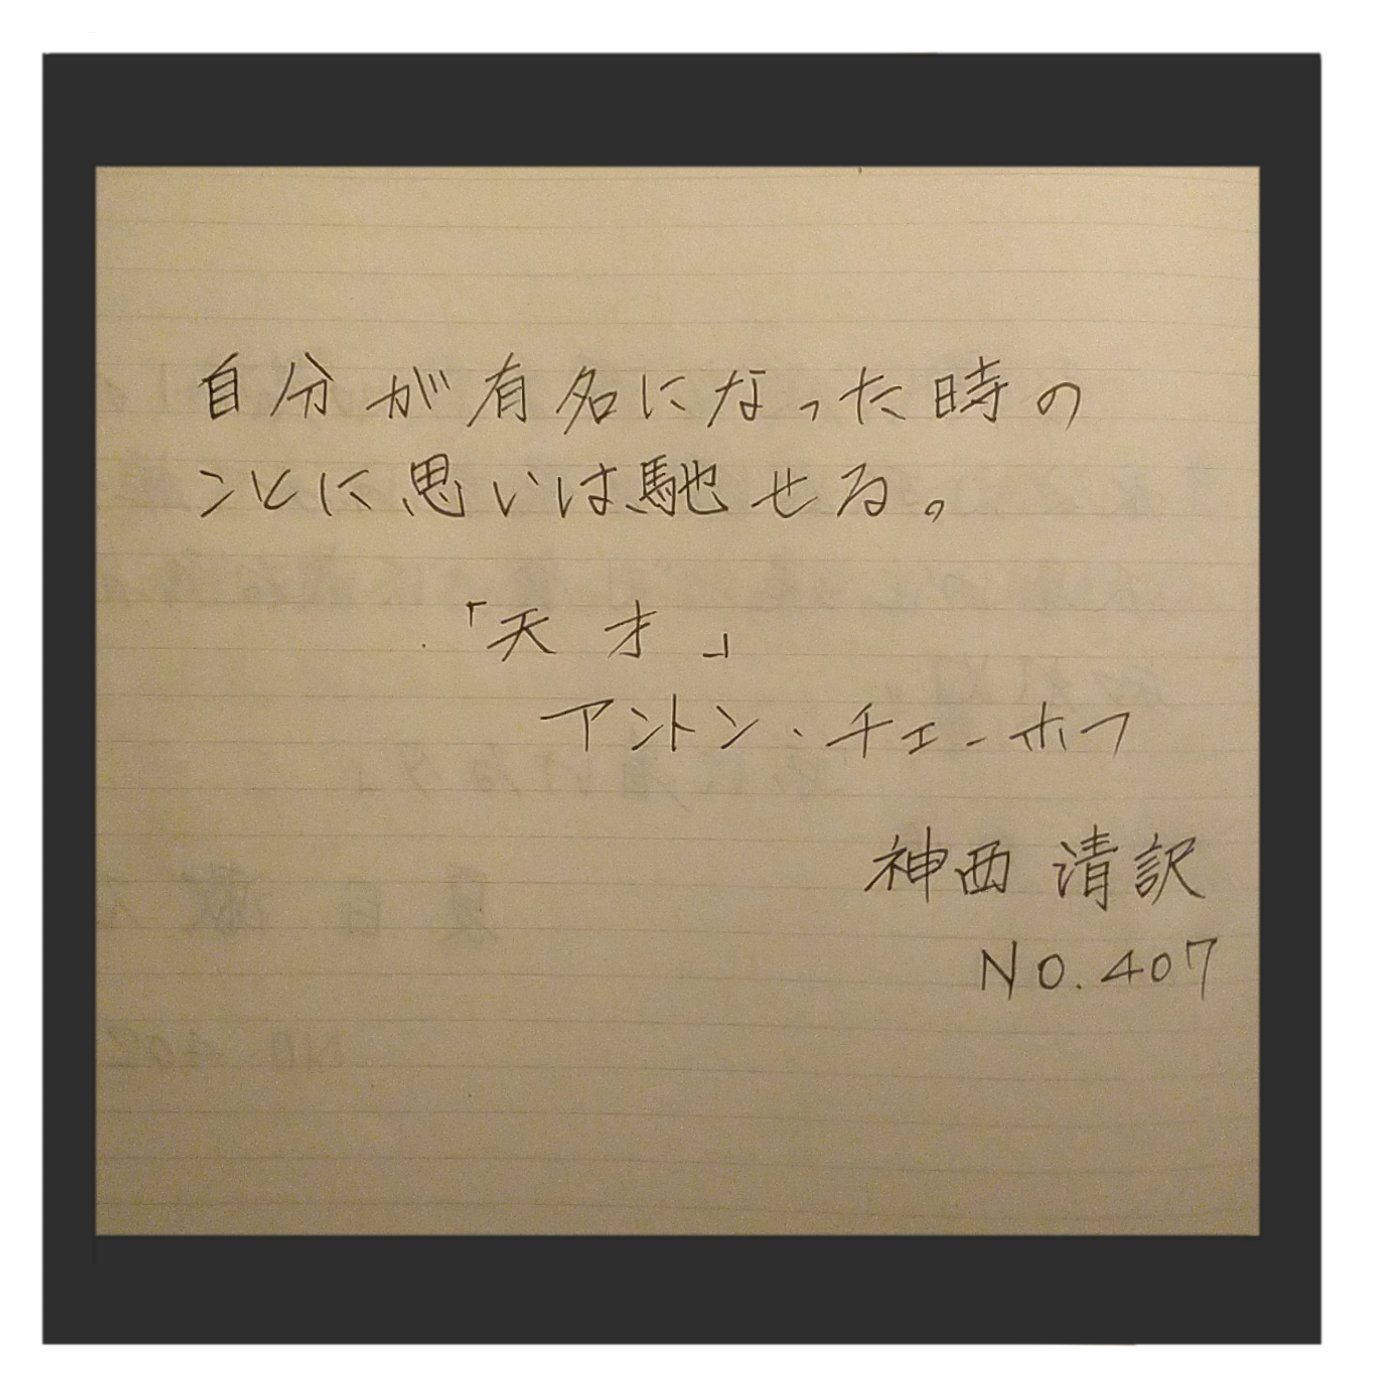 自分が有名になった時の
ことに思いは馳せる。
「天才」
アントン・チェーホフ
神西 清訳
NO.407